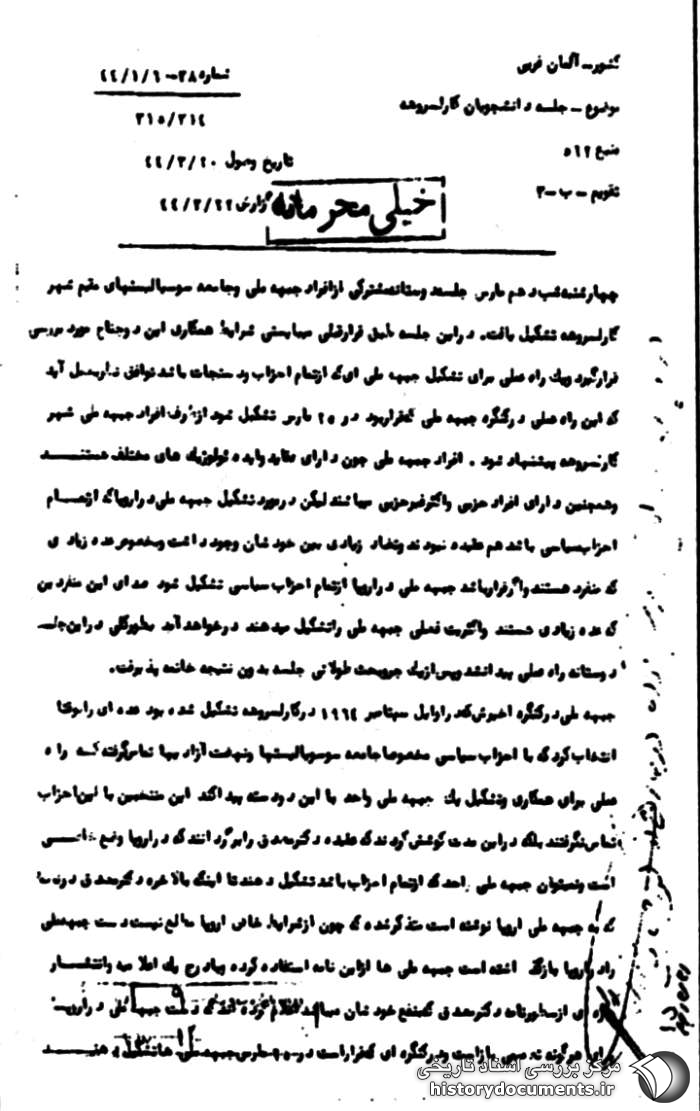 کشور - آلمان غربی
شماره ۳۸-۴۴/۱/۶
موضوع - جلسه دانشجویان کارلسروهه
۳۱۵/۳۱٤
منبع ۵۶۲
تاریخ وصول ۴۴/۳/۲۰
تقویم - ب-۳
گزارش ۴۴/۳/۲۲
خیلی محرمانه
چهارشنبه شب دهم مارس جلسه دوستانه مشترکی از افراد جبهه ملی وجامعه سوسیالیستهای مقیم شهر
کارلسروهه تشکیل یافت. دراین جلسه طبق قرارقبلی میبایستی شرایط همکاری این دوجناح مورد بررسی
قرارگیرد ویک راه عملی برای تشکیل جبهه ملی ای که ازتمام احزاب ودستجات باشد توافق نظربعمل آید
که این راه عملی درکنگره جبهه ملی که قراربود در ۲۵ مارس تشکیل شود ازطرف افراد جبهه ملی شهر
کارلسروهه پیشنهاد شود . افراد جبهه ملی چون دارای عقاید وایده ئولوژیک های مختلف هستند
وهمچنین دارای افراد حزبی واکثرغیرحزبی میباشند لیکن درمورد تشکیل جبهه ملی دراروپا که ازتمام
احزاب سیاسی باشد هم عقیده نبودند وتضاد زیادی بین خودشان وجود داشت وبخصوص عده زیادی
که منفرد هستند واگرقرارباشد جبهه ملی دراروپا ازتمام احزاب سیاسی تشکیل شود صدای این منفردین
که عده زیادی هستند واکثریت فعلی جبهه ملی راتشکیل میدهند درخواهد آمد بطورکلی دراین جلسه
دوستانه راه عملی پیدانشد وپس ازیک جروبحث طولانی جلسه بدون نتیجه خاتمه پذیرفت.
جبهه ملی درکنگره اخیرش که دراوایل سپتامبر ۱۹۶۴ درکارلسروهه تشکیل شده بود عده ای را
انتخاب کرد که با احزاب سیاسی مخصوصا جامعه سوسیالیستها ونهضت آزادیها تماس گرفته که راه
عملی برای همکاری وتشکیل یک جبهه ملی واحد با این دودسته پیداکند این منتخبین با این احزاب
تماس نگرفتند بلکه دراین مدت کوشش کردند که عقیده دکترمصدق رابرگردانند که دراروپا وضع خاصی
است ونمیتوان جبهه ملی واحد که ازتمام احزاب باشد تشکیل دهند تا اینکه بالاخره دکترمصدق درنامه
که به جبهه ملی اروپا نوشته است متذکرشده که چون ازشرایط خاص اروپا مطلع نیست دست جبهه ملی
رادراروپا بازگذاشته است جبهه ملی ها ازاین نامه استفاده کرده وبادرج یک اعلامیه وانتشار
ای ازسطورنامه دکترمصدق که بنفع خودشان میباشد اعلام کرده اند که دست جبهه ملی دراروپا
برای هرگونه تصمیمی بازاست ودرکنگره ای که قراراست در مارس جبهه ملی ها تشکیل بدهند
مرکز بررسی اسناد تاریخی
historydocuments.ir